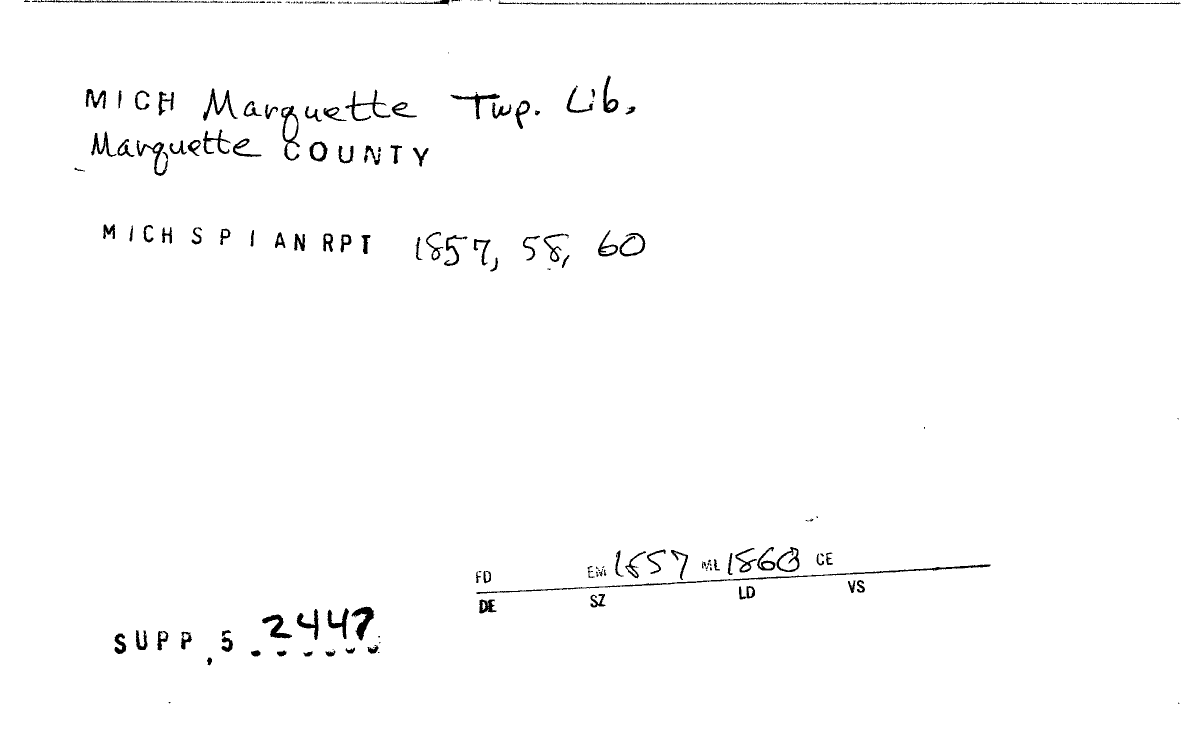 MICH Marquette Twp. Lib.
Marquette COUNTY
MICH S P I AN RPT 1857, 58, 60
FD EM 1857 ML 1860 CE
DE SZ LD VS
SUPP, 5 2447